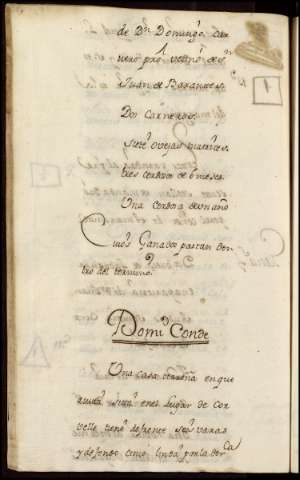 de Dn Domingo
vezino de Sn
Juan de Baranzes.
Dos Carneros,
siete ovejas matrizes.
tres corderos de 6 meses.
Una cordera de un año
Cuios Ganados pastan den-
tro del termino.
Domo Conde
Una casa terrena en que
avita en el Lugar de Cor
velle tiene de frente seis varas
y de fondo cinco linda por la der